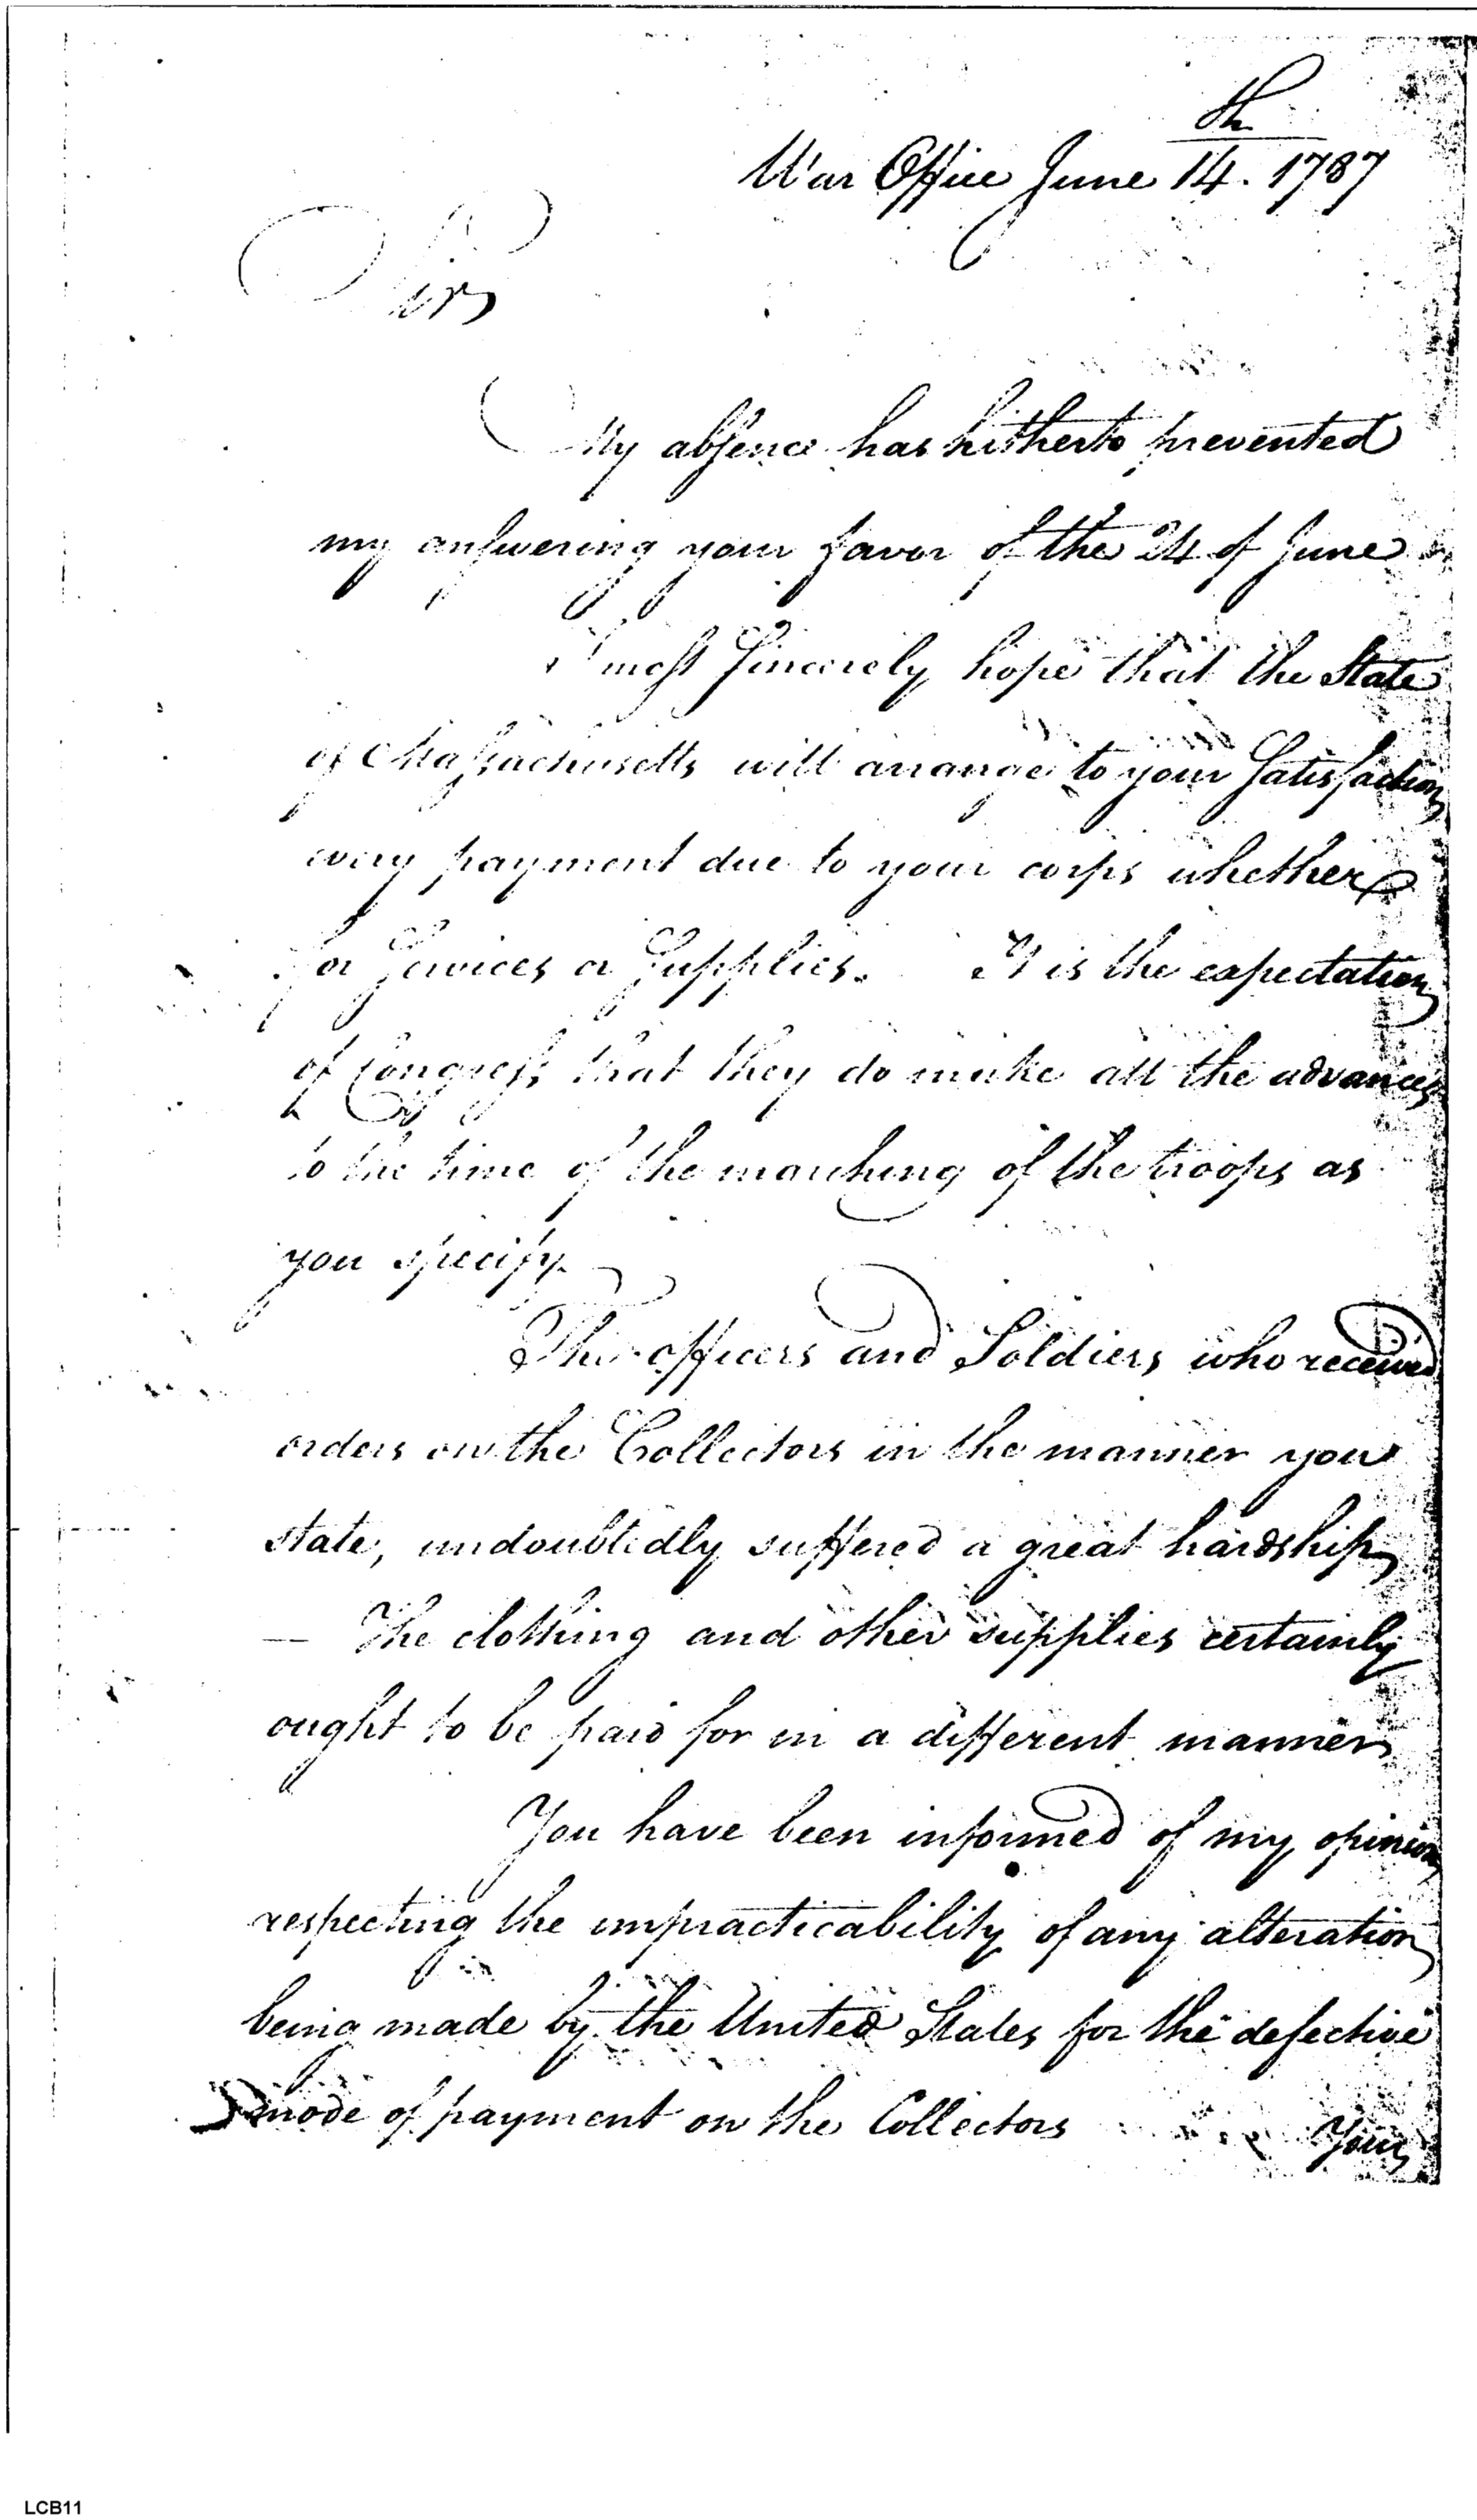 War Office June 14th. 1787
Sir
My absence has hitherto prevented
my answering your favor of the 24 of June
I most Sincerely hope that the State
of Massachusetts will arrange to your Satisfaction
every payment due to your corps whether
for Services or Supplies. It is the expectation
of Congress that they do make all the advances
to the time of the marching of the troops as
you specify.
The officers and Soldiers who received
orders on the Collectors in the manner you
state, undoubtedly suffered a great hardship
— The clothing and other supplies certainly
ought to be paid for in a different manner
You have been informed of my opinion
respecting the impracticability of any alteration
being made by the United States for the defective
mode of payment on the Collectors
Your
LCB11